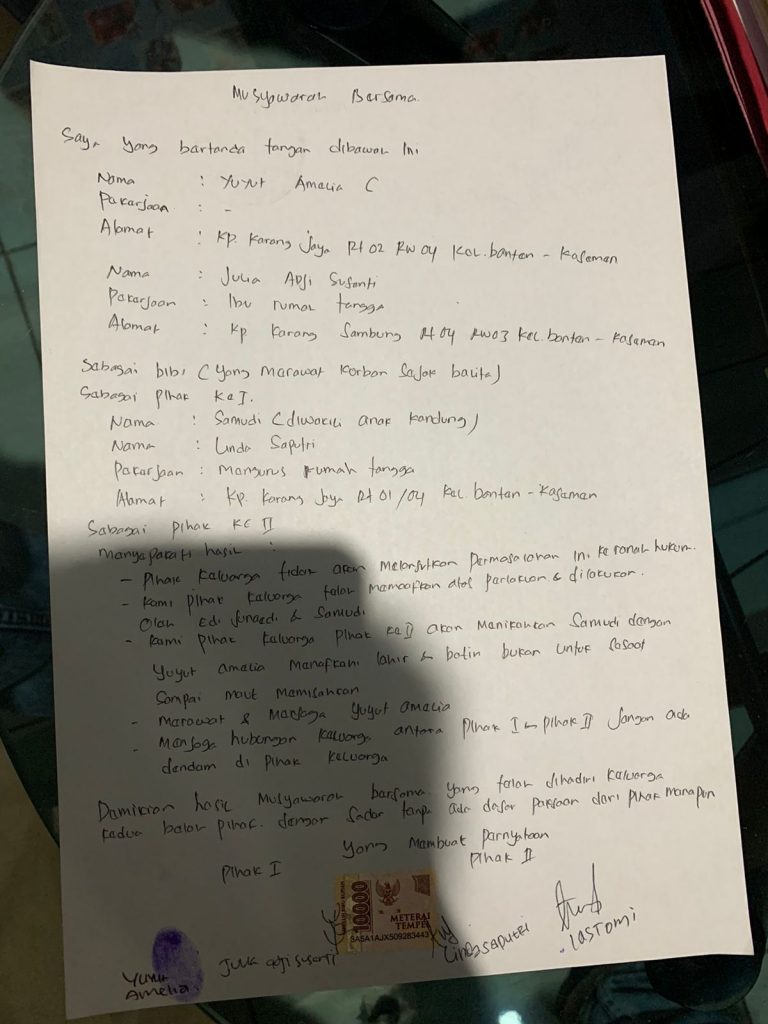 Musyawarah Bersama.
Saya yang bertanda tangan dibawah Ini
Nama : Yuyut Amalia C
Pekerjaan : -
Alamat : Kp. Karang Jaya Rt 02 RW 04 Kel. banten - Kasemen
Nama : Julia Adji Susanti
Pekerjaan : Ibu rumah tangga
Alamat : Kp Karang Sambung Rt 04 RW03 Kel. banten - Kasemen
Sebagai bibi (yang merawat korban sejak balita)
Sebagai pihak Ke I.
Nama : Samudi (diwakili anak kandung)
Nama : Linda Saputri
Pekerjaan : Mengurus rumah tangga
Alamat : Kp. Karang Jaya Rt 01/04 Kel. banten - Kasemen
Sebagai pihak KE II
Menyepakati hasil :
- Pihak keluarga tidak akan Melanjutkan Permasalahan Ini ke ranah hukum.
- Kami pihak keluarga telah memaafkan atas perlakuan & dilakukan.
Oleh Edi Junaedi & Samudi
- Kami pihak keluarga pihak ke II akan Menikahkan Samudi dengan
Yuyut amelia Menafkahi lahir & batin bukan untuk sesaat
Sampai maut Memisahkan
- Merawat & Menjaga Yuyut amelia
- Menjaga hubungan keluarga antara pihak I & pihak II Jangan ada
dendam di pihak keluarga
Demikian hasil Musyawarah bersama yang telah dihadiri keluarga
kedua belah pihak. dengan sadar tanpa ada dasar paksaan dari pihak manapun
Yang Membuat pernyataan
Pihak I Pihak II
10000
METERAI
TEMPEL
5A5A1AJX509283443
Yuyut
Amelia
Julia adji susanti
Linda saputri
Lastomi